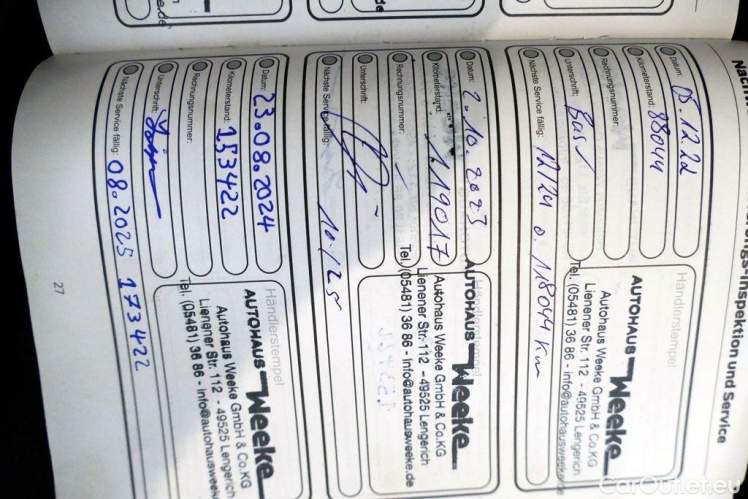 Nachw
ungs-Inspektion und Service
Datum: 05.12.22
Kilometerstand: 88044
Rechnungsnummer:
Unterschrift:
Nächste Service fällig: 12/24 o 118044 Km
Händlerstempel
AUTOHAUS Weeke
Autohaus Weeke GmbH & Co.KG
Lienener Str. 112 - 49525 Lengerich
Tel. (05481) 36 86 - info@autohausweeke.de
Datum: 2.10.2023
Kilometerstand: 119017
Rechnungsnummer:
Unterschrift:
Nächste Service fällig: 10/25
Händlerstempel
AUTOHAUS Weeke
Autohaus Weeke GmbH & Co.KG
Lienener Str. 112 - 49525 Lengerich
Tel. (05481) 36 86 - info@autohausweeke.de
Datum: 23.08.2024
Kilometerstand: 153422
Rechnungsnummer:
Unterschrift:
Nächste Service fällig: 08.2025 173422
Händlerstempel
AUTOHAUS Weeke
Autohaus Weeke GmbH & Co.KG
Lienener Str. 112 - 49525 Lengerich
Tel. (05481) 36 86 - info@autohausweeke
27
CarOutlet.eu